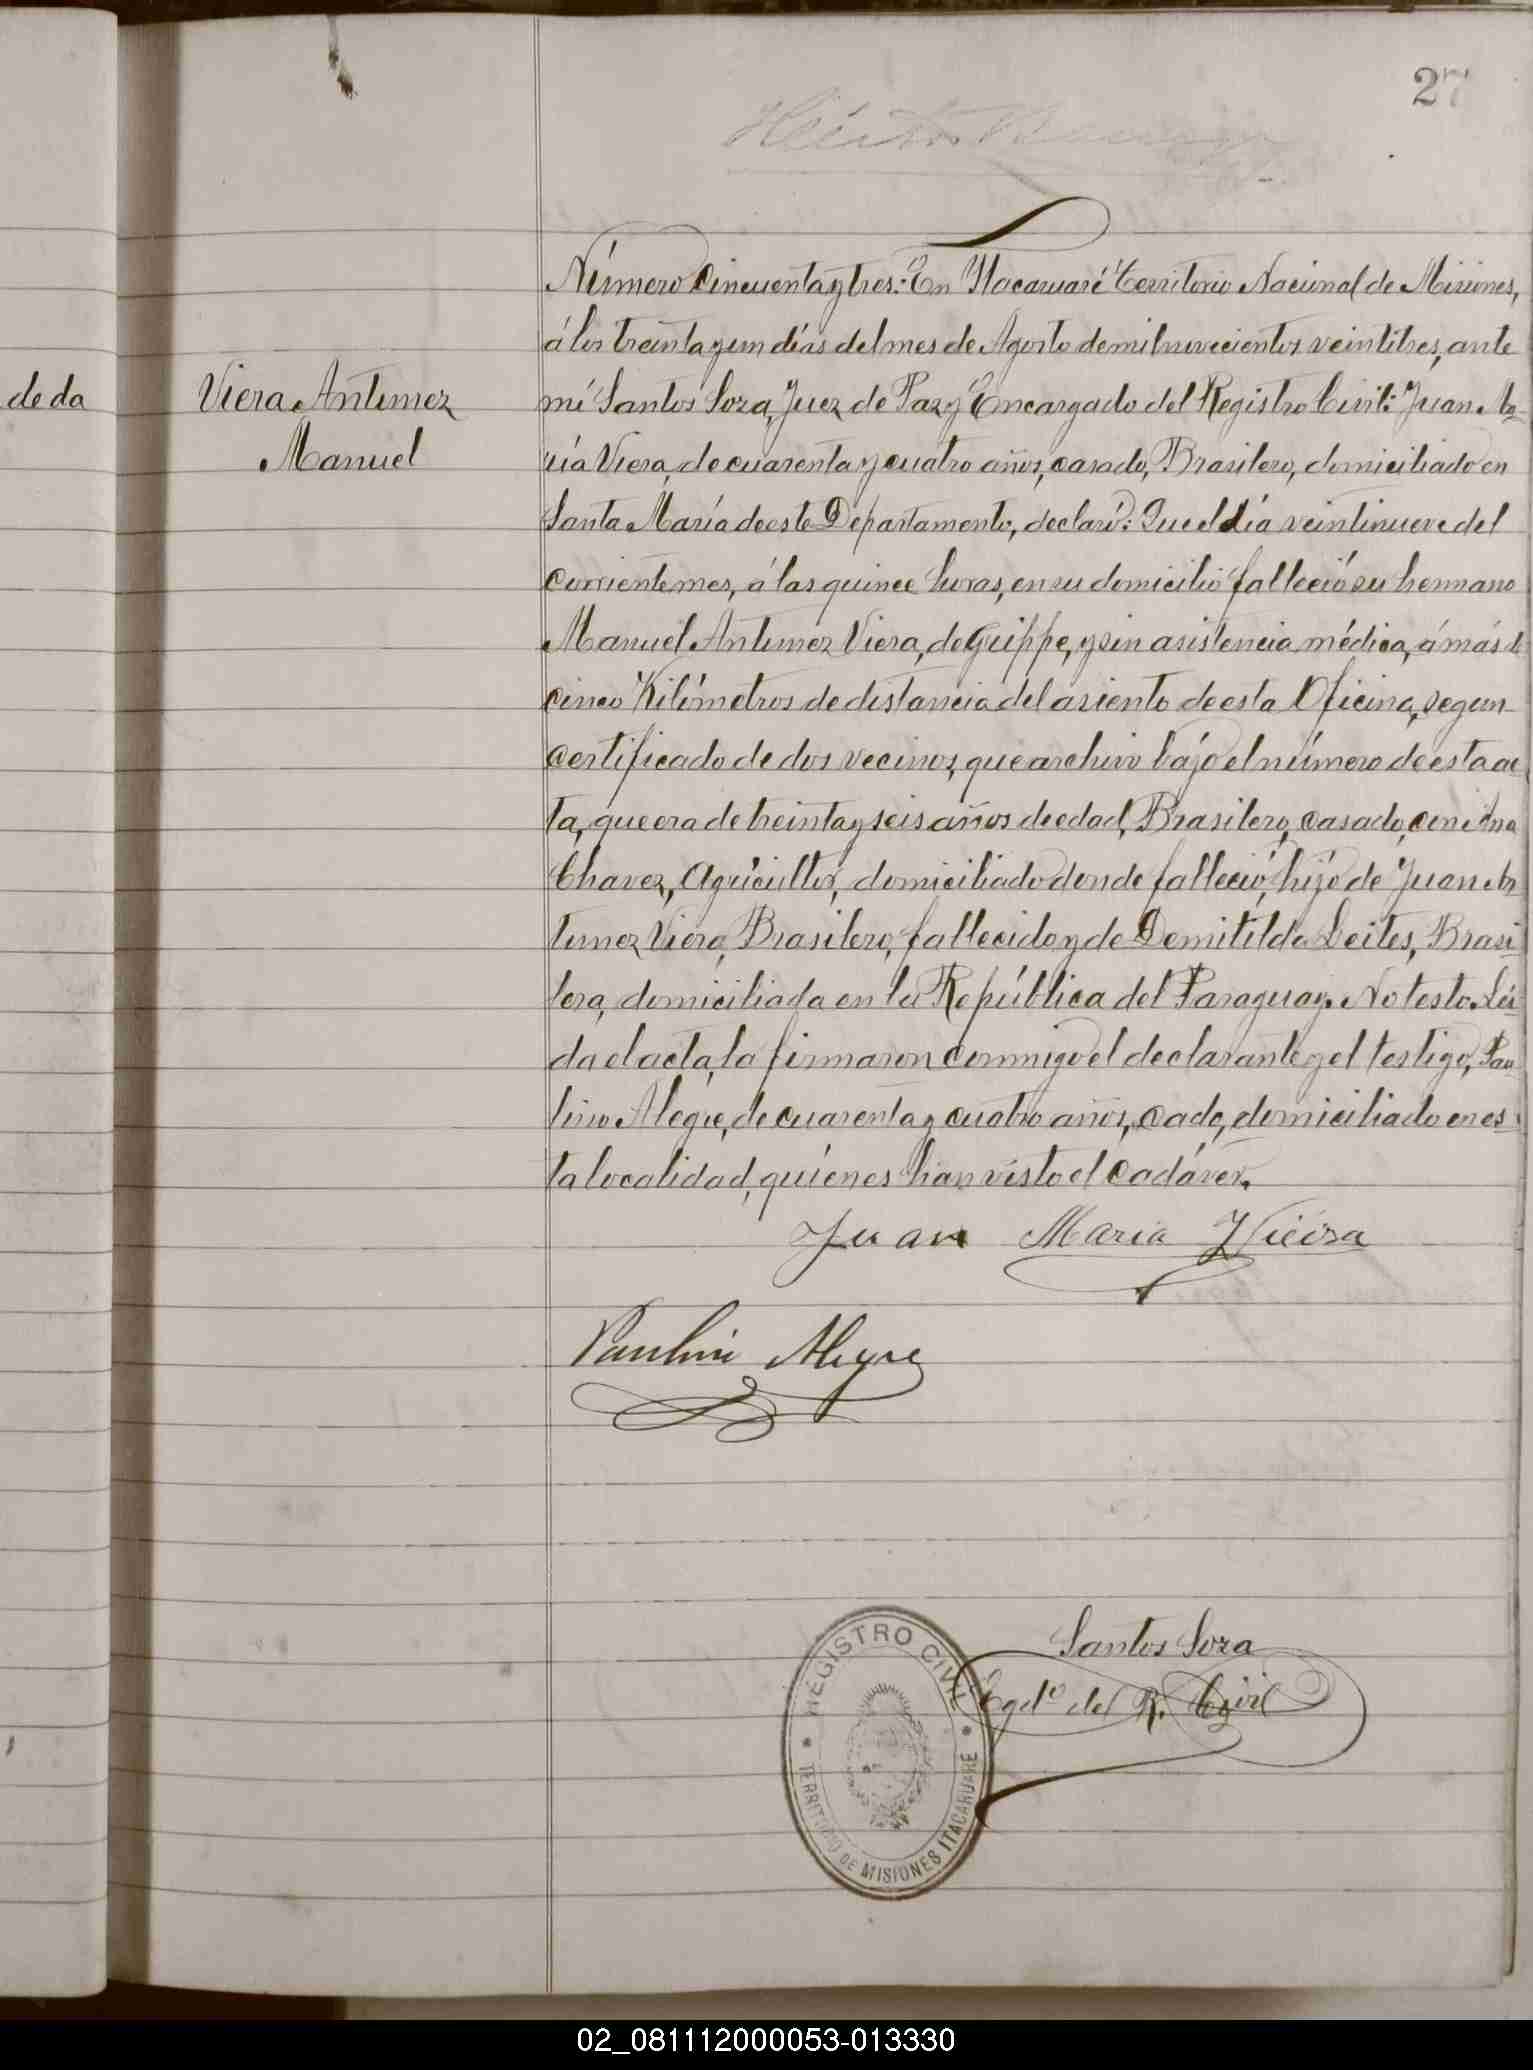 27
de da
Viera Antunez
Manuel
Número cincuenta y tres: En Itacaruaré Territorio Nacional de Misiones,
á los treinta y un días del mes de Agosto de mil novecientos veintitres, ante
mí Santos Soza, Juez de Paz y Encargado del Registro Civil: Juan Ma-
ria Viera, de cuarenta y cuatro años, casado, Brasilero, domiciliado en
Santa María de este Departamento, declaró: Que el día veintinueve del
corriente mes, á las quince horas, en su domicilio falleció su hermano
Manuel Antunez Viera, de Grippe, y sin asistencia médica, á más de
cinco Kilómetros de distancia del asiento de esta Oficina, segun
certificado de dos vecinos, que archivo bájo el número de esta ac
ta, que era de treinta y seis años de edad, Brasilero, casado, con Ana
Chavez, Agricultor, domiciliado donde falleció, hijo de Juan An
tunez Viera, Brasilero, fallecido y de Demitilda Leites, Brasi
lera, domiciliada en la República del Paraguay. No testo. Leí-
da el acta, la firmaron conmigo el declarante y el testigo, Pau
lino Alegre, de cuarenta y cuatro años, cado, domiciliado en es-
ta localidad, quiénes han visto el cadáver.
Juan Maria Vieira
Paulino Alegre
Santos Soza
Egdo del R. Civil
REGISTRO CIVIL
TERRITORIO DE MISIONES ITACARUARE
02_081112000053-013330